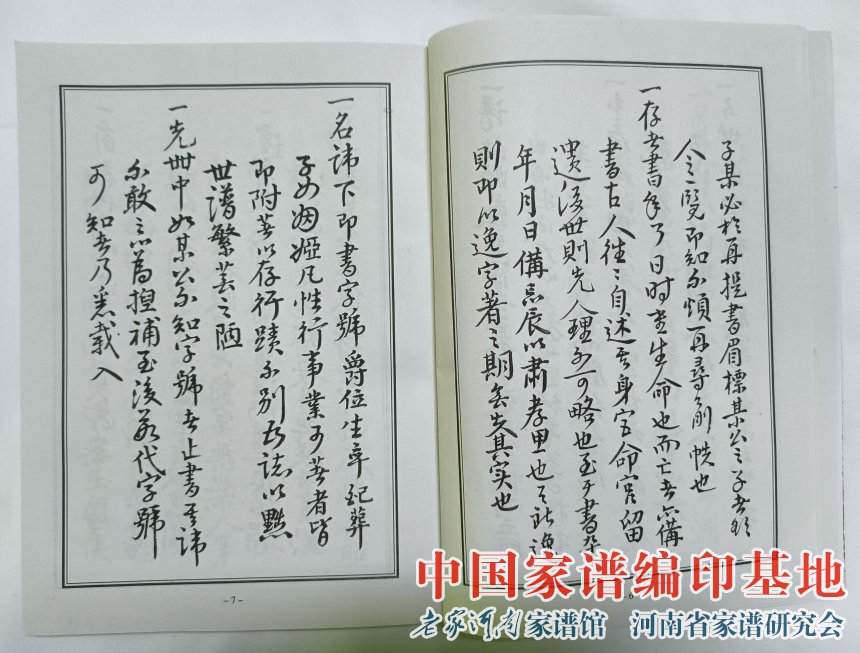 子某必於再提書眉標某公之子者
人之一覽即知不煩再尋前帙也
一存者書年月日時重生命也而亡者亦備
書古人往々自述其身宮命宮留
遺後世則先人理不可略也至于書卒
年月日備忌辰以肅孝思也逸
則即以逸字著之期無失其實也
一名諱下即書字號爵位生卒紀葬
子女姻婭凡性行事業可著者皆
即附著以存行蹟不別為誌以黜
世譜繁芸之陋
一先世中如某公不知字號者止書其諱
不敢為捏補至後數代字號
可知者乃悉載入
-7-
中国家谱编印基地
老家河南家谱馆 河南省家谱研究会